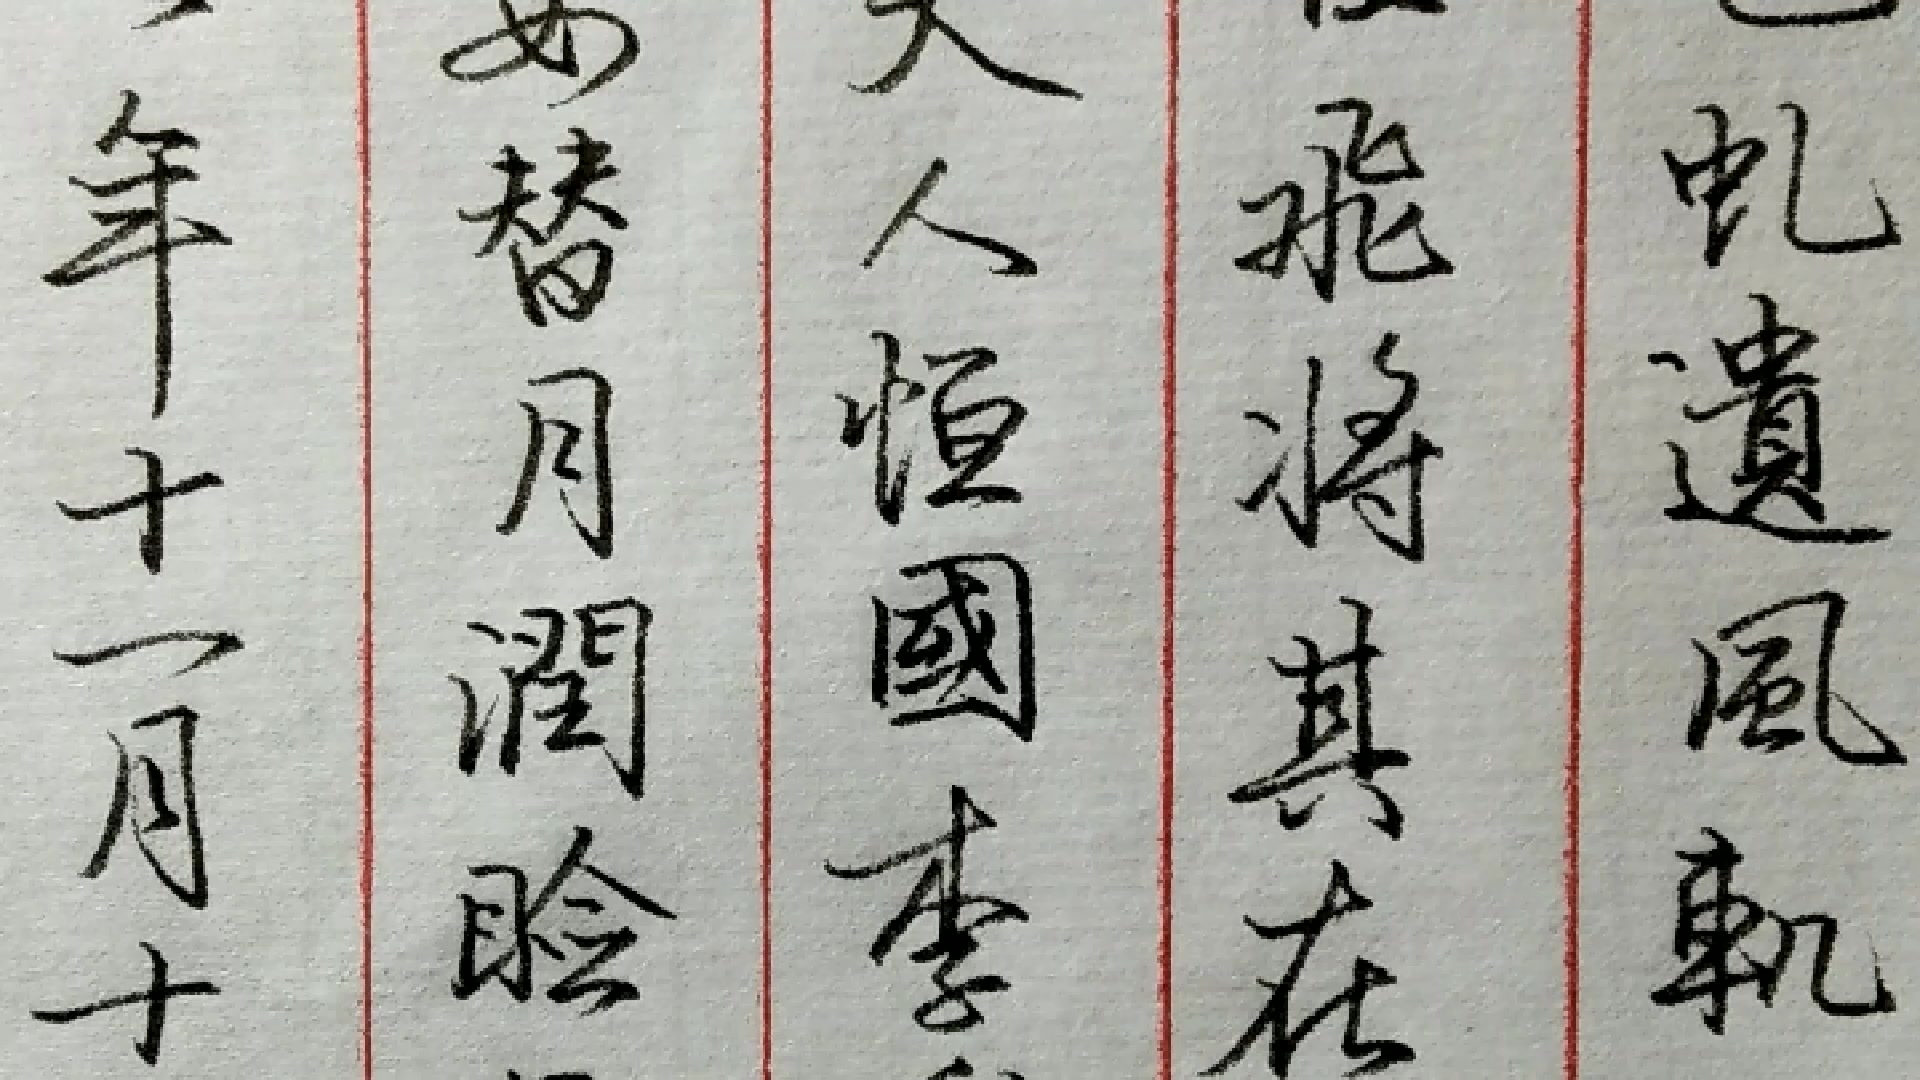 虬遺風軌
飛將其在
人恒國李
替月潤瞼
年十一月十